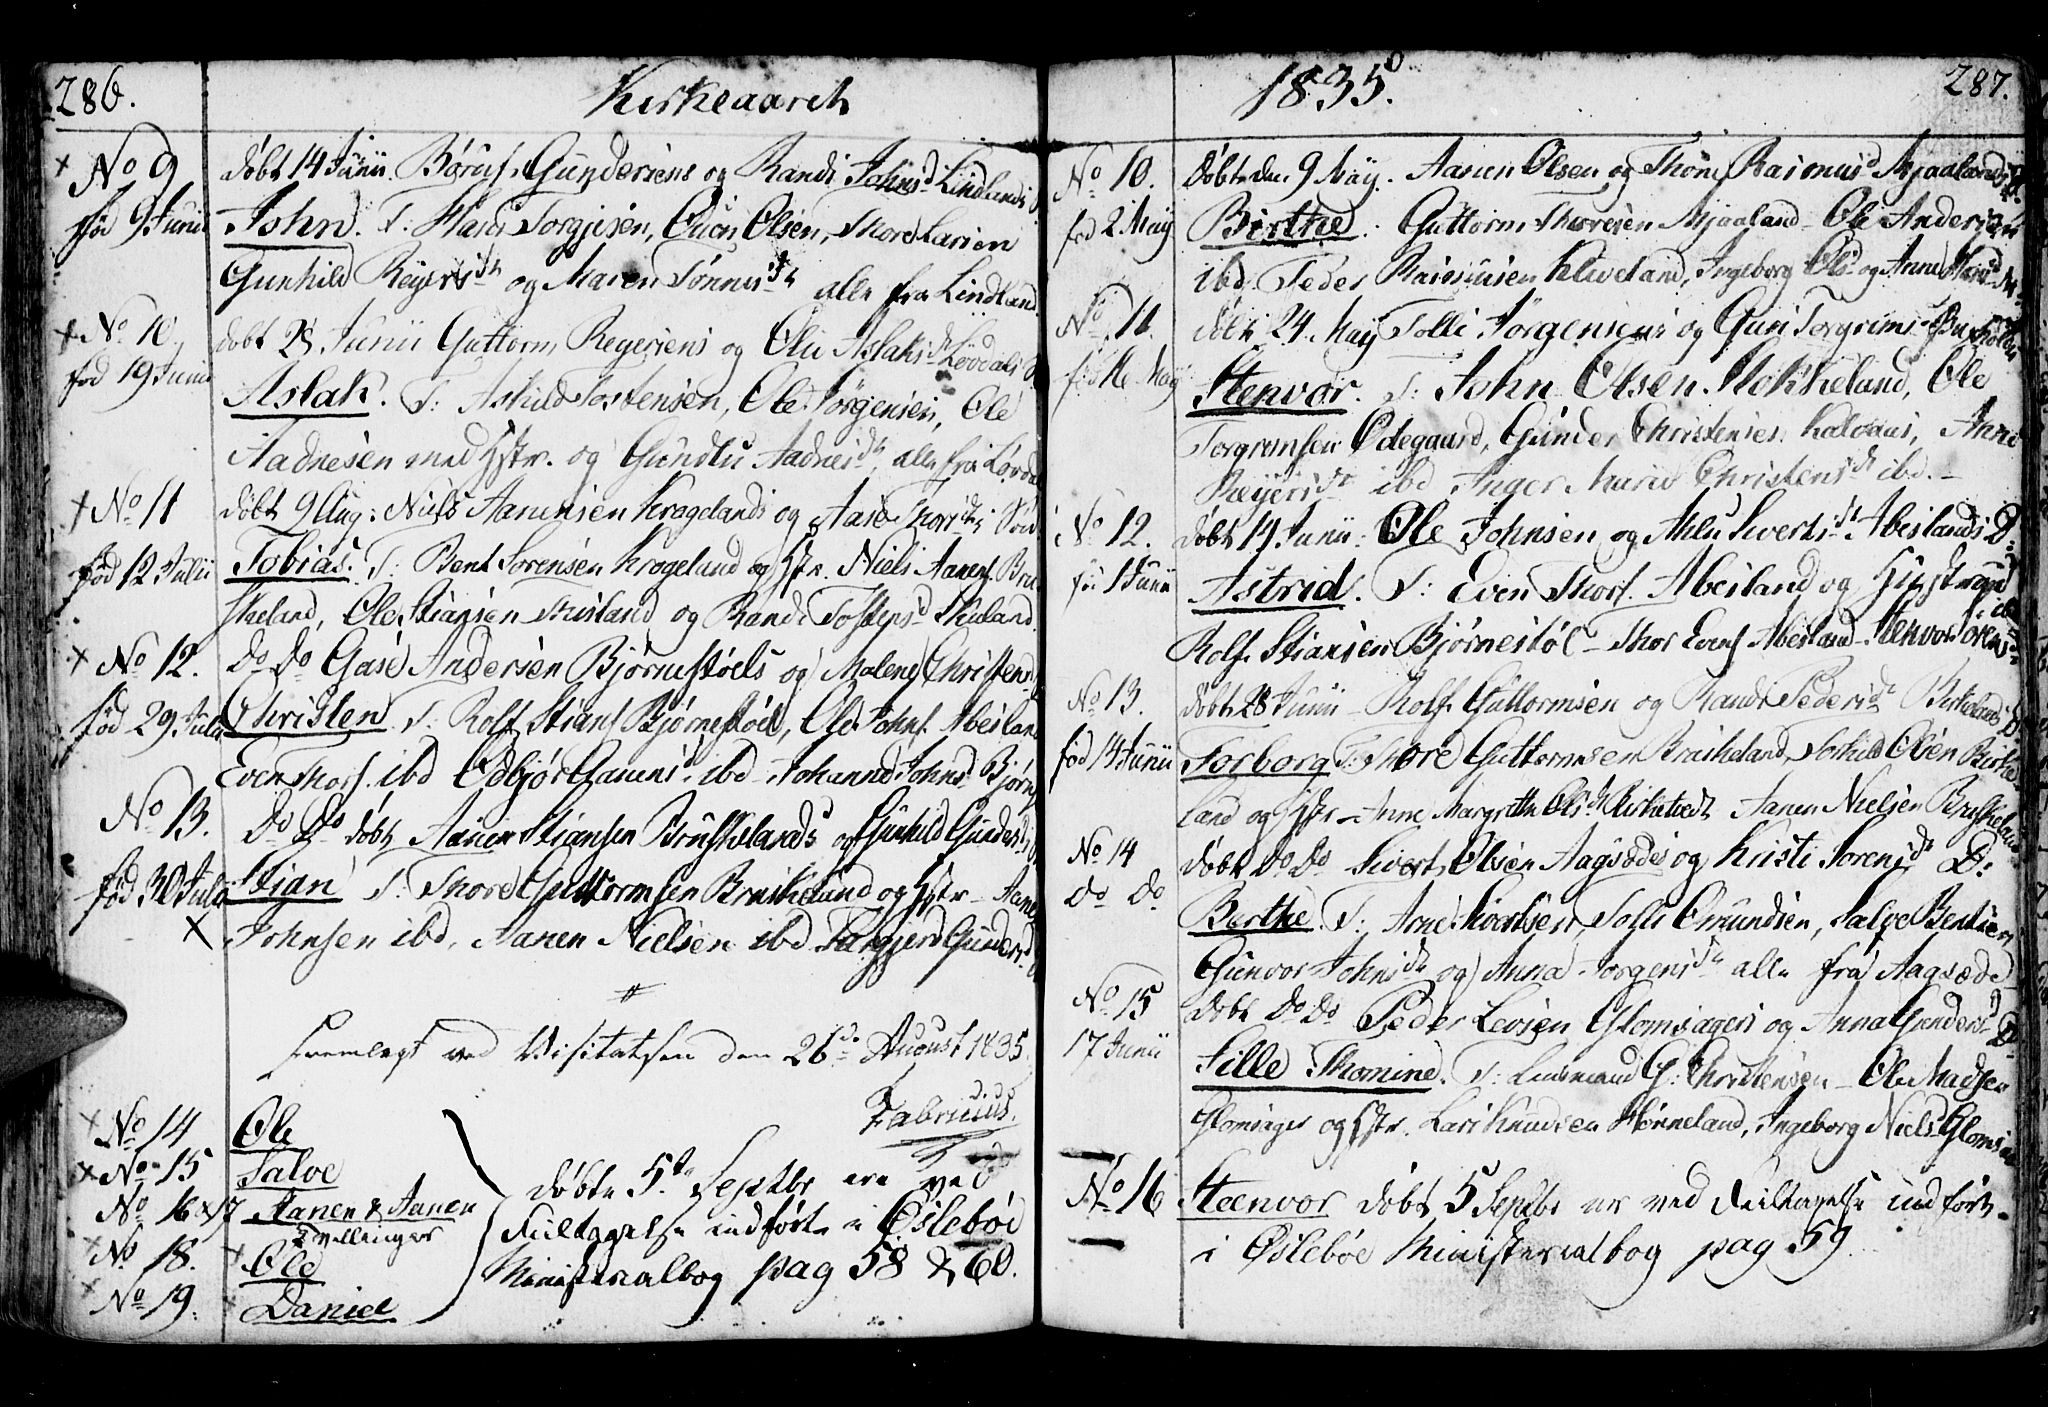 286.
Kirkeaaret
× No 9
fød 9 Junii
døbt 14 Junii. Børuf Gundersens og Randi Johnsd Lindlands
John. T: Hans Torgjusen, Even Olsen, Thore Larsen
Gunhild Reyersdtr og Maren Tønnesdtr alle fra Lindland
× No 10.
fød 19 Junii
døbt 28 Junii Guttorm Reyersens og Oli Aslaksdr Løvdals
Aslak. T: Askild Tostensen, Ole Jørgensen, Ole
Aadnesen med Hstr. og Gundlu Aadnesdtr, alle fra Løvda
× No 11
fød 12 Julii
døbt 9 Aug: Niels Aanensen Kragelands og Aase Thorsdtrs
Tobias. T: Bent Sørensen Krogeland og Hstr. Niels Aanens. Bru
skeland, Ole Stiansen og Randi Tostensd
× No 12.
fød 29 Julii
Do Do Gase Andersen Bjørnestøels og Malene Christens
Christen. T: Rolf Stians Bjørnestøel, Ole Johns. Abesland
Even Thors. ibd Odbjør Gasensd. ibd - Johanne Johnsd Bjørne
No 13.
fød 30 Julii
×
Do Do døbt Aanen Stiansen Bruskelands og Gunhild Gundersd
Stian T: Thore Guttormsen Bruskeland og Hstr - Aanen
Johnsen ibd, Aanen Nielsen ibd Torgjerd Gundersd
Fremlagt ved Visitatsen den 26de August 1835.
Fabricius.
× No 14 Ole
× No 15 Salve
No 16 & 17 Aanen & Aanen
Tvillinger
× No 18. × Ole
× No 19. × Daniel
døbte 5te Septbr ere ved
Feiltagelse indførte i Øslebøe
Ministerialbog pag 58 & 60.
1835.
287.
No 10.
fød 2 May
døbt den 9 May. Aanen Olsen og Thone Rasmusd Mjaalands
Birthe. Guttorm Thoresen Mjaaland - Ole Andersen
ibd. Peder Rasmusen Kleveland, Ingeborg Olsd og Anne Hansd
No 11.
fød 16 May
døbt 24. May Tolli Jørgensens og Guri Torgrimsd
Stenvor. T: John Olsen Stokkeland, Ole
Torgrimsen Ødegaard, Gunder Christensen Kalvaas, Anne
Reyersdtr ibd Inger Marie Christensdtr ibd. -
No 12.
fød 1 Junii
døbt 14 Junii: Ole Johnsen og Ahlu Sivertsdt Abeslands
Astrid. T: Even Thors. Abesland og Hstr
Rolf Stiansen Bjørnestøl - Thor Evens Abesland - Stenvor Sørens
No 13.
fød 14 Junii
døbt 28 Junii - Rolf Guttormsen og Randi Pedersdt Birkelands
Torborg. T: Thore Guttormsen Bruskeland, Torkild Olsen Birke
land og Hstr - Anne Margrethe Olsdt Kirkestedt Aanen Nielsen Bruskeland
No 14
Do Do
døbt Do Do Sivert Olsen Aagsædes og Kirsti Sørensdt D:
Berthe. T: Arne Sivertsen, Tolli Omundsen, Salve Bentsen
Gunvor Johnsdtr og Anna Jørgensdtr alle fra Aagsæde
No 15
17 Junii
Døbt Do Do Peder Levsen Glomsagers og Anna Gundersd
Sille Thomine. T: Lensmand G: Christensen - Ole Madsen
Glomsager og Hstr. Lars Knudsen Hønneland, Ingeborg Nielsd Glomsager
No 16
Steenvor døbt 5 Septbr er ved Feiltagelse indført
i Øslebøe Ministerialbog pag 59